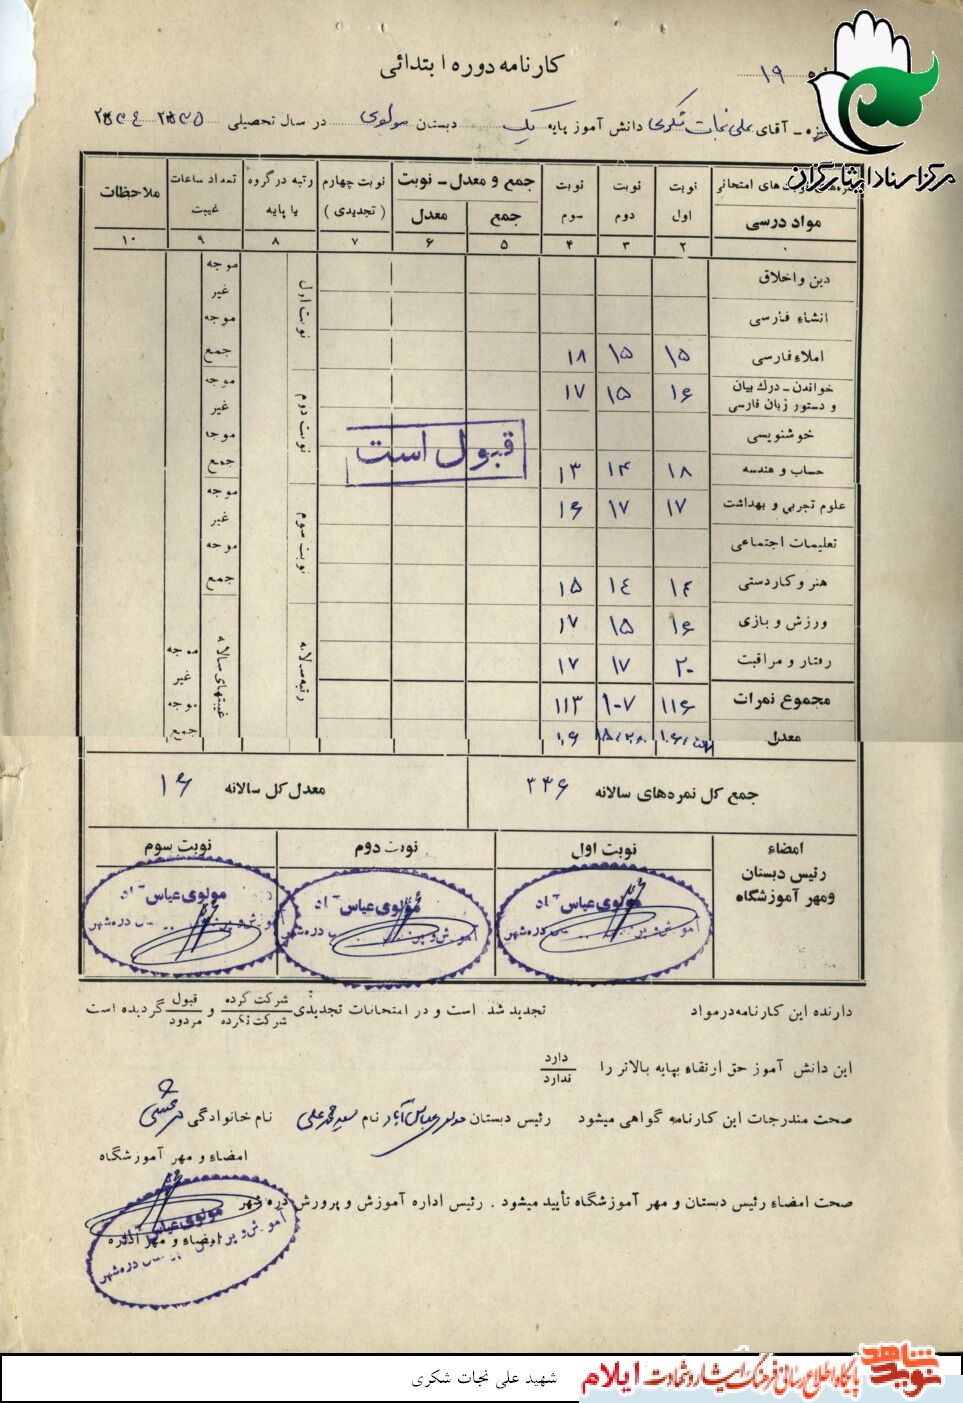 کارنامه دوره ابتدائی
۱۹
آقای علی نجات شکری دانش آموز پایه یک دبستان مولوی در سال تحصیلی
مرکز اسناد ایثارگران
مواد درسی
نوبت اول
نوبت دوم
نوبت سوم
جمع و معدل ـ نوبت
جمع
معدل
نوبت چهارم (تجدیدی)
رتبه در گروه یا پایه
تعداد ساعات غیبت
ملاحظات
۲ ۳ ۴ ۵ ۶ ۷ ۸ ۹ ۱۰
دین و اخلاق
انشاء فارسی
املاء فارسی ۱۵ ۱۵ ۱۸
خواندن ـ درك بیان و دستور زبان فارسی ۱۶ ۱۵ ۱۷
خوشنویسی
حساب و هندسه ۱۸ ۱۴ ۱۳
علوم تجربی و بهداشت ۱۷ ۱۷ ۱۶
تعلیمات اجتماعی
هنر و کاردستی ۱۴ ۱۴ ۱۵
ورزش و بازی ۱۶ ۱۵ ۱۷
رفتار و مراقبت ۲۰ ۱۷ ۱۷
مجموع نمرات ۱۱۶ ۱۰۷ ۱۱۳
معدل
قبول است
نوبت اول
نوبت دوم
نوبت سوم
رتبه سالانه
موجه
غیر موجه
جمع
موجه
غیر موجه
جمع
موجه
غیر موجه
جمع
غیبتهای سالانه
موجه
غیر موجه
جمع
جمع کل نمره‌های سالانه ۳۳۶
معدل کل سالانه ۱۶
امضاء
رئیس دبستان
ومهر آموزشگاه
نوبت اول
نوبت دوم
نوبت سوم
مولوی عباس آباد
مولوی عباس آباد
مولوی عباس آباد
دارنده این کارنامه درمواد تجدید شده است و در امتحانات تجدیدی شرکت کرده شرکت نکرده و قبول مردود گردیده است
این دانش آموز حق ارتقاء بپایه بالاتر را دارد ندارد
صحت مندرجات این کارنامه گواهی میشود رئیس دبستان مولوی عباس آباد نام نام خانوادگی
امضاء و مهر آموزشگاه
صحت امضاء رئیس دبستان و مهر آموزشگاه تأیید میشود . رئیس اداره آموزش و پرورش دره شهر
امضاء و مهر اداره
مولوی عباس آباد
شهید علی نجات شکری
پایگاه اطلاع رسانی فرهنگ ایثار و شهادت ایلام
نوید شاهد